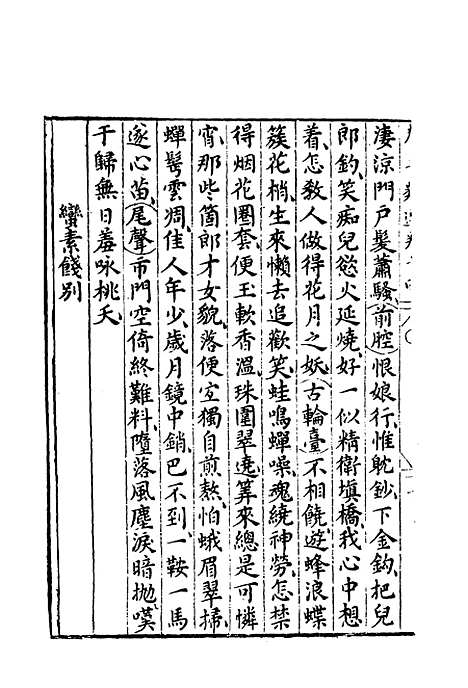 淒涼門戶髮蕭騷前腔恨娘行惟耽鈔下金鈎把兒
郎釣笑痴兒慾火延燒好一似精衛塡橋我心中想
着怎教人做得花月之妖古輪臺不相饒遊蜂浪蝶
簇花梢生來懶去追歡笑蛙鳴蟬噪魂繞神勞怎禁
得烟花圈套便玉軟香溫珠圍翠遶筭來總是可憐
宵那些箇郎才女貌落便宜獨自煎熬怕蛾眉翠掃
蟬鬢雲凋佳人年少歲月鏡中銷巴不到一鞍一馬
遂心苗尾聲市門空倚終難料墮落風塵淚暗抛嘆
于歸無日羞咏桃夭
蠻素餞別